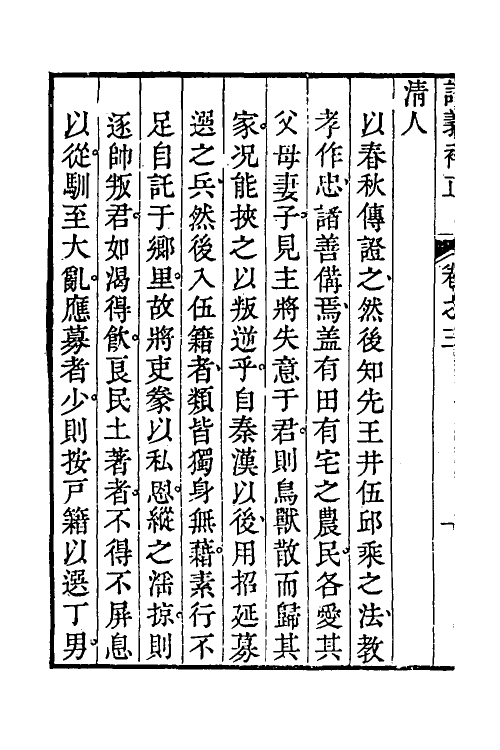 卷之三
清人
以春秋傳證之然後知先王井伍邱乘之法教
孝作忠諸善備焉盖有田有宅之農民各愛其
父母妻子見主將失意于君則鳥獸散而歸其
家况能挾之以叛逆乎自秦漢以後用招延募
選之兵然後入伍籍者類皆獨身無藉素行不
足自託于鄉里故將吏豢以私恩縱之滛掠則
逐帥叛君如渴得飲良民土著者不得不屏息
以從馴至大亂應募者少則按戸籍以選丁男